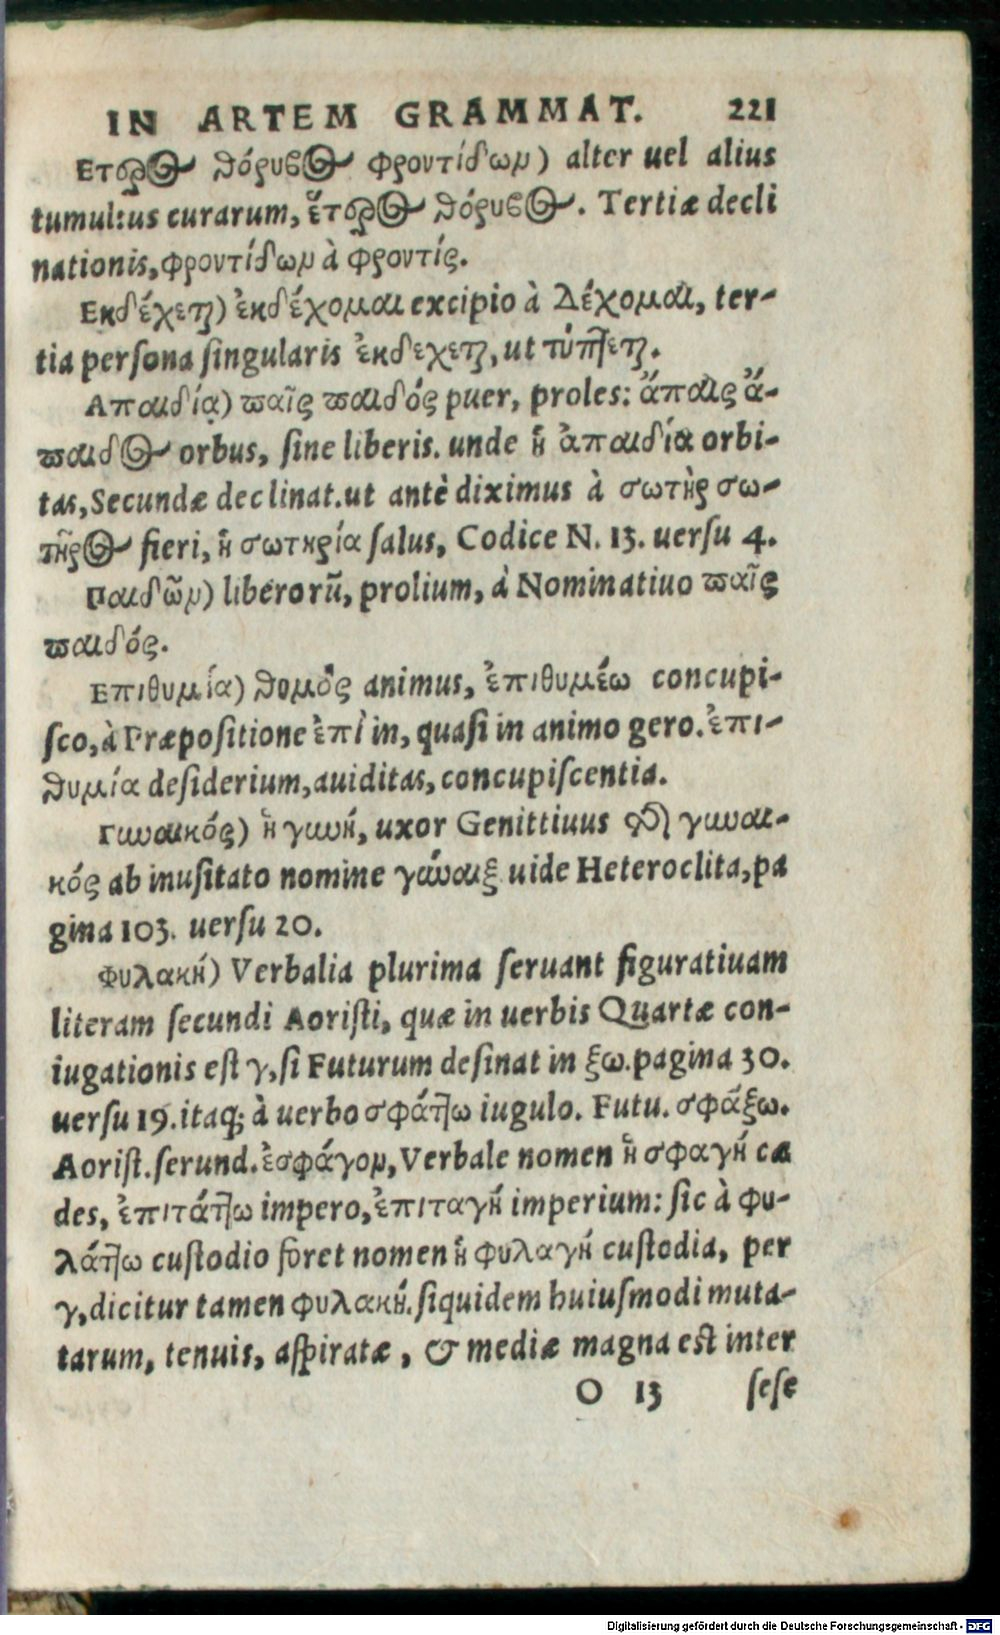 IN ARTEM GRAMMAT. 221
Ετερος θόρυβος φροντίδων) alter uel alius
tumultus curarum, ἕτερος θόρυβος. Tertiæ decli
nationis, φροντίδων à φροντίς.
Εκδέχεται) ἐκδέχομαι excipio à Δέχομαι, ter-
tia persona singularis ἐκδεχεται, ut τύπτεται.
Απαιδία) παῖς παιδός puer, proles: ἄπαις ἄ-
παιδος orbus, sine liberis. unde ἡ ἀπαιδία orbi-
tas, Secundæ declinat. ut antè diximus à σωτὴρ σω-
τῆρος fieri, ἡ σωτηρία salus, Codice N. 13. uersu 4.
Παιδῶν) liberorũ, prolium, à Nominatiuo παῖς
παιδός.
Επιθυμία) θυμὸς animus, ἐπιθυμέω concupi-
sco, à Præpositione ἐπὶ in, quasi in animo gero. ἐπι-
θυμία desiderium, auiditas, concupiscentia.
Γυναικός) ἡ γυνή, uxor Genittiuus τοῦ γυναι-
κός ab inusitato nomine γύναιξ uide Heteroclita, pa
gina 103. uersu 20.
Φυλακή) Verbalia plurima seruant figuratiuam
literam secundi Aoristi, quæ in uerbis Quartæ con-
iugationis est γ, si Futurum desinat in ξω. pagina 30.
uersu 19. itaq; à uerbo σφάττω iugulo. Futu. σφάξω.
Aorist. serund. ἐσφάγον, Verbale nomen ἡ σφαγή cæ
des, ἐπιτάττω impero, ἐπιταγή imperium: sic à φυ-
λάττω custodio foret nomen ἡ φυλαγή custodia, per
γ, dicitur tamen φυλακή. siquidem huiusmodi muta-
tarum, tenuis, aspiratæ, & mediæ magna est inter
O 13 sese
Digitalisierung gefördert durch die Deutsche Forschungsgemeinschaft - DFG